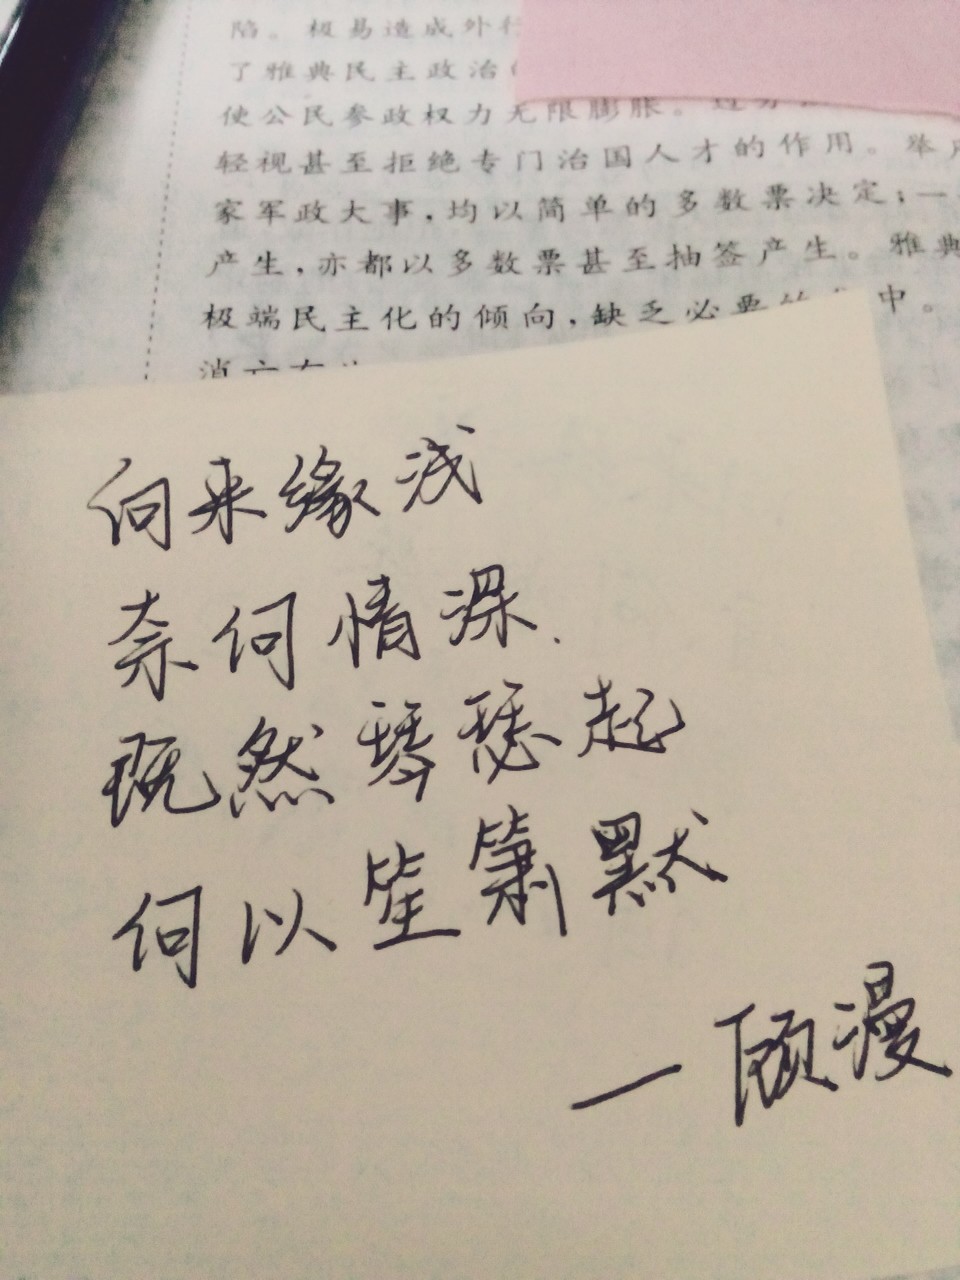 陷。极易造成外
了雅典民主政治
使公民参政权力无限膨胀。过分
轻视甚至拒绝专门治国人才的作用。举
家军政大事，均以简单的多数票决定；一
产生，亦都以多数票甚至抽签产生。雅典
极端民主化的倾向，缺乏必要的 中。
向来缘浅
奈何情深.
既然琴瑟起
何以笙箫默
—顾漫